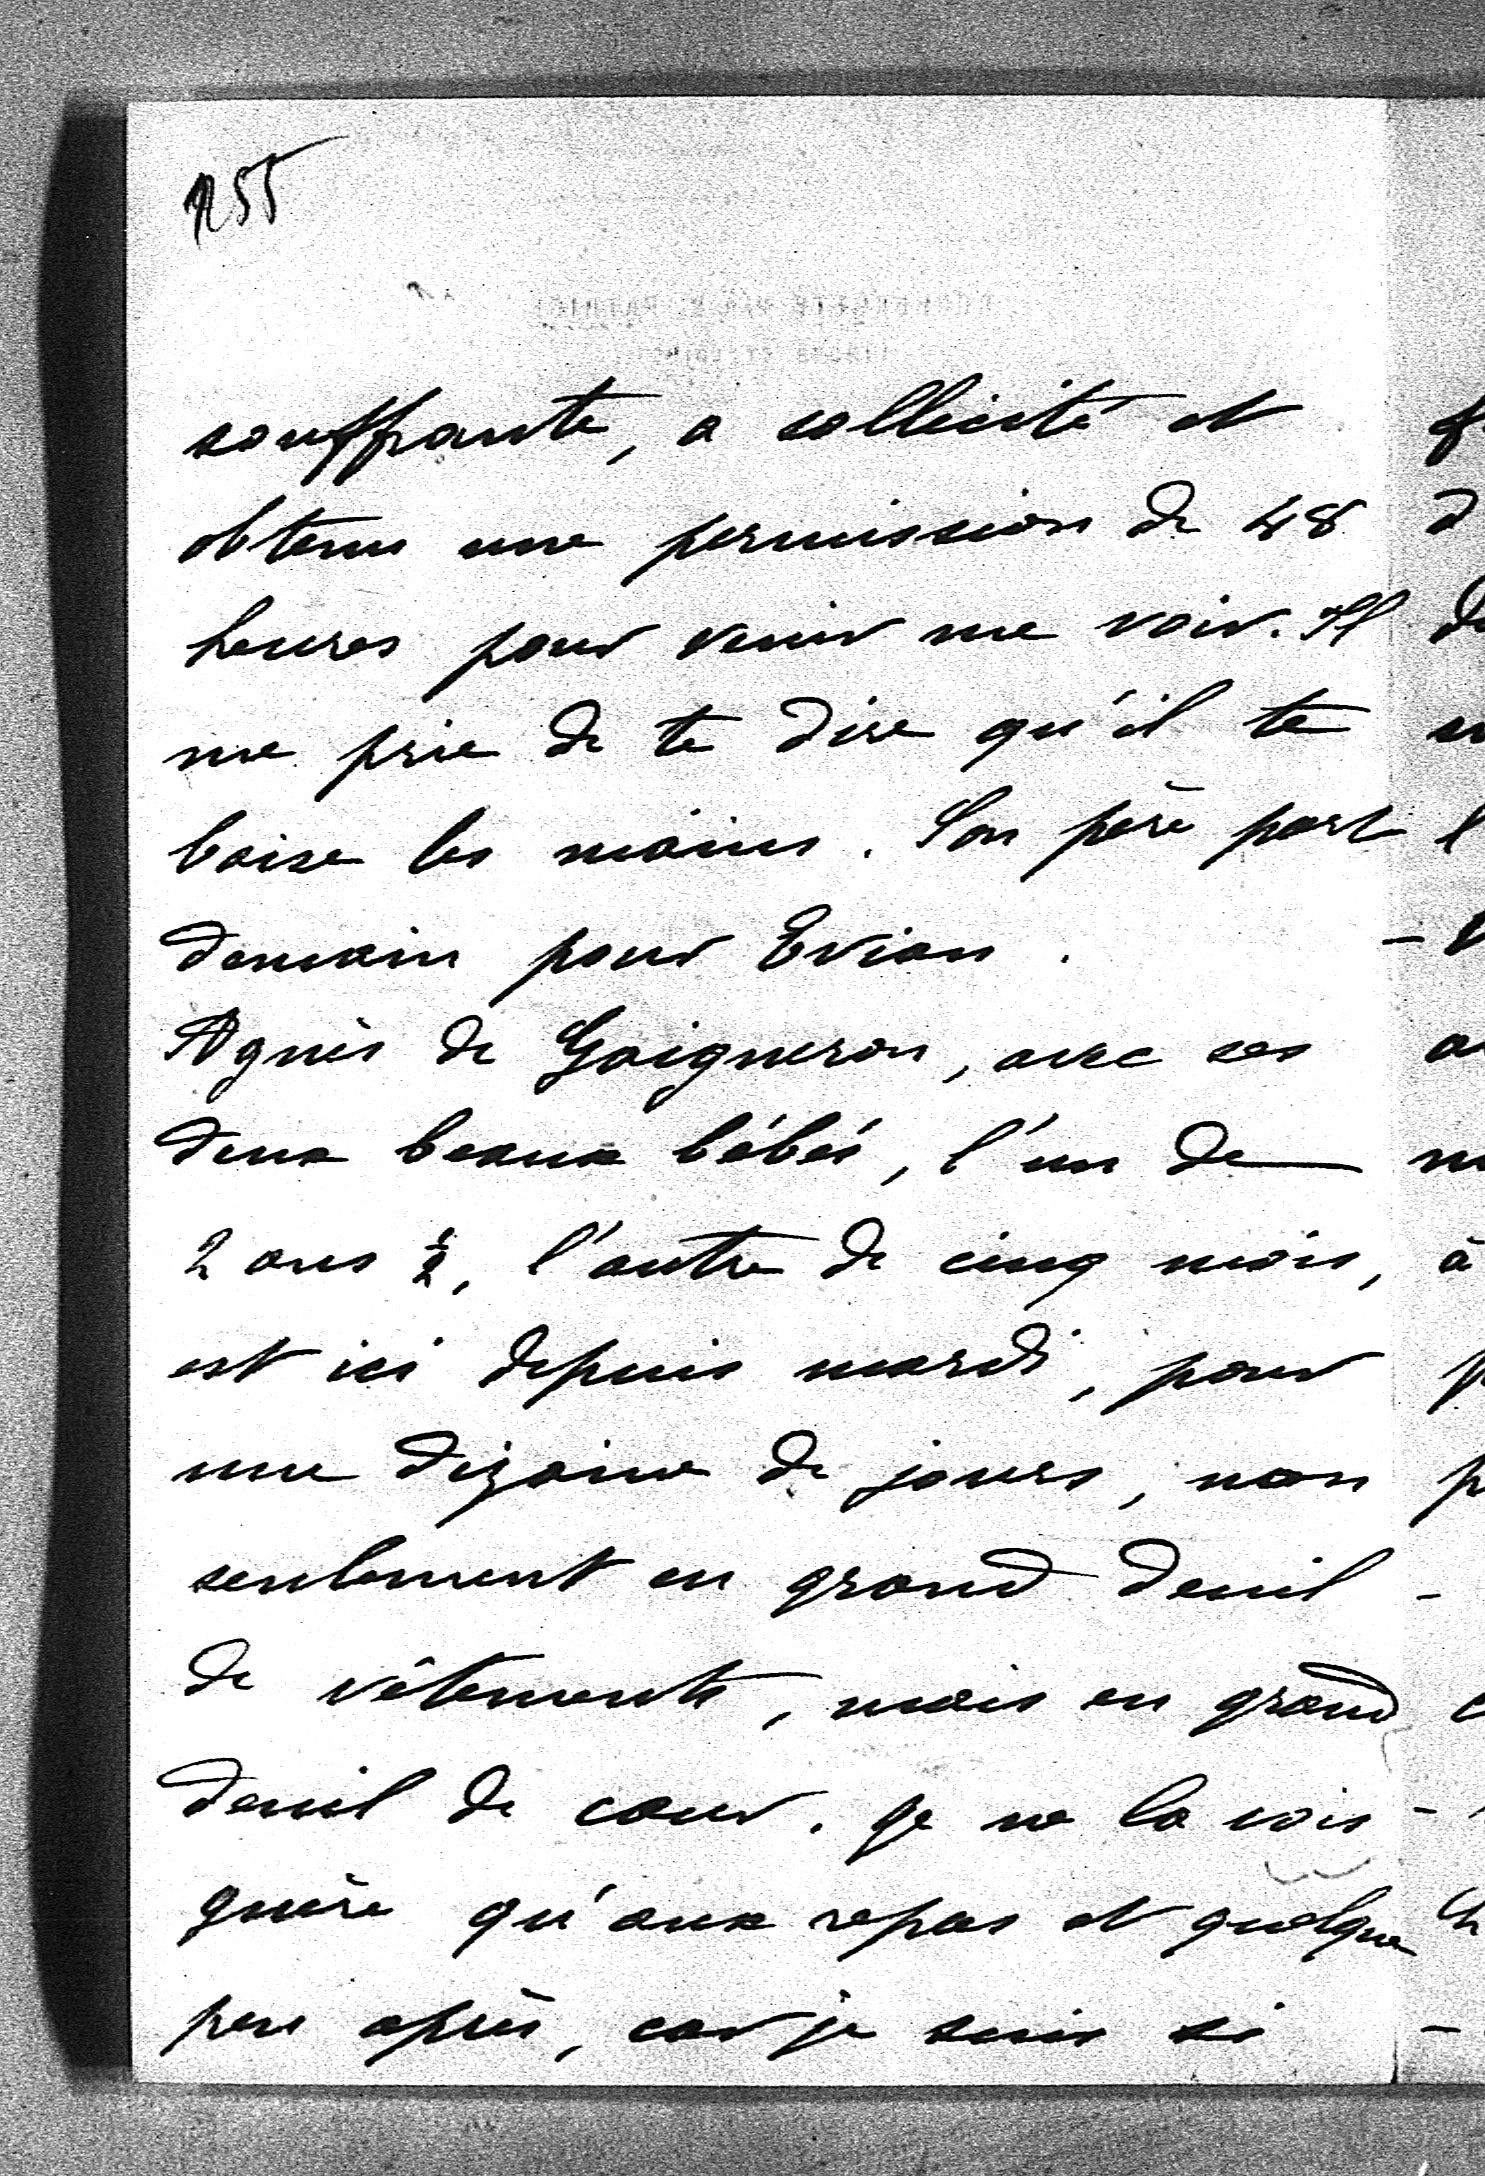 255
souffrante, a sollicité et
obtenu une permission de 48
heures pour venir me voir. Il
me prie de te dire qu'il te
baise les mains. Son père part
demain pour Evian.
Agnès de Gaigneron, avec ses
deux beaux bébés, l'un de
2 ans ½, l'autre de cinq mois,
est ici depuis mardi, pour
une dizaine de jours, non
seulement en grand deuil
de vêtements, mais en grand
deuil de cœur. Je ne la vois
guère qu'aux repas et quelque
peu après, car je suis si